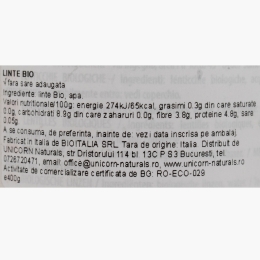 LINTE BIO
√fara sare adaugata
Ingrediente: linte Bio, apa.
Valori nutritionale/100g: energie 274kJ/65kcal, grasimi 0.3g din care saturate
0.0g, carbohidrati 8.9g din care zaharuri 0.0g, fibre 3.8g, proteine 4.8g, sare
0.05g
A se consuma, de preferinta, inainte de: vezi data inscrisa pe ambalaj.
Fabricat in Italia de BIOITALIA SRL. Tara de origine: Italia. Distribuit de
UNICORN Naturals, str Dristorului 114 bl. 13C P S3 Bucuresti, tel.
0726720471, email: office@unicorn-naturals.ro, www.unicorn-naturals.ro
Activitate de comercializare certificata de BG: RO-ECO-029
e400g